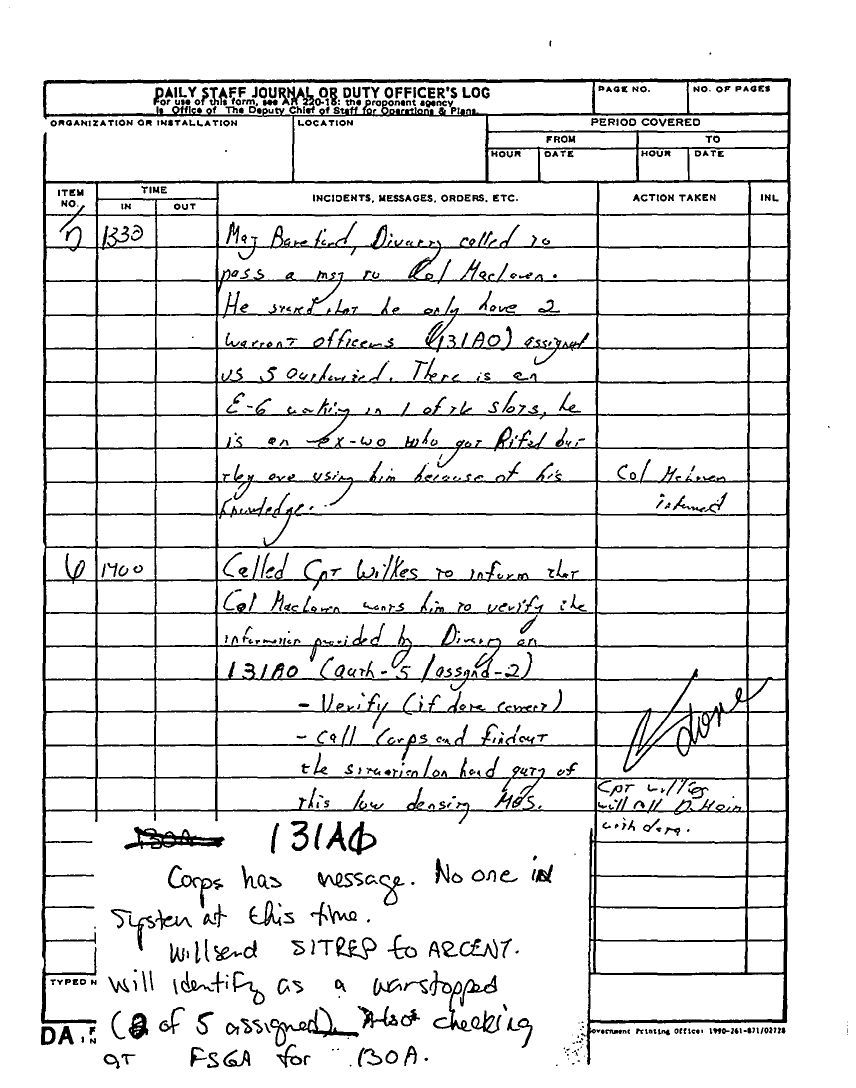 DAILY STAFF JOURNAL OR DUTY OFFICER'S LOG
For use of this form, see AR 220-15; the proponent agency
is Office of The Deputy Chief of Staff for Operations & Plans.
PAGE NO.
NO. OF PAGES
ORGANIZATION OR INSTALLATION
LOCATION
PERIOD COVERED
FROM
TO
HOUR
DATE
HOUR
DATE
ITEM NO.
TIME
IN
OUT
INCIDENTS, MESSAGES, ORDERS, ETC.
ACTION TAKEN
INL
1330
Maj Bareford, Divarty called to
pass a msg to Col MacLaven.
He stated that he only have 2
warrant officers (131A0) assigned
vs 5 authorized. There is an
E-6 working in 1 of the slots, he
is an ex-wo who got Rifed but
they are using him because of his
knowledge.
Col
informed
6
1700
Called Cpt Wilkes to inform that
Col MacLaven wants him to verify the
information provided by Divarty on
131A0 (auth-5/assgnd-2)
- Verify (if data correct)
- Call Corps and findout
the situation/on hand qty of
this low density MOS.
done
Cpt Wilkes
will call D. Main
with data.
130A 131AΦ
Corps has message. No one in
System at this time.
Will send SITREP to ARCENT.
Will identify as a warstopped
(2 of 5 assigned). Also checking
at FSGA for 130A.
TYPED N
DA
overnment Printing Office: 1990-261-871/02728